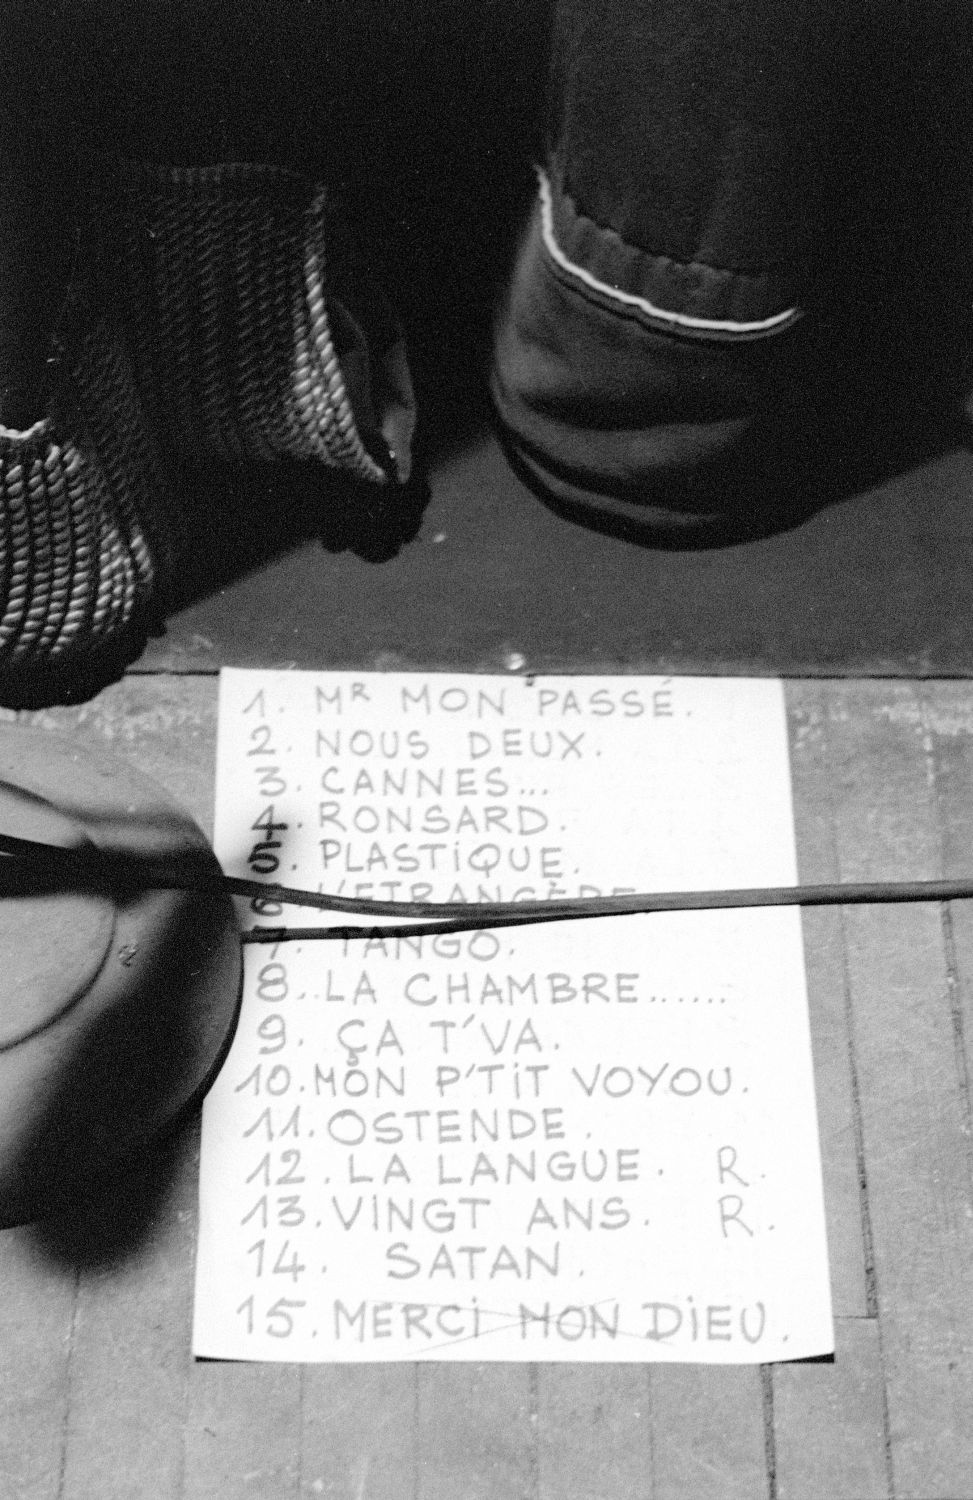 1. MR MON PASSÉ.
2. NOUS DEUX.
3. CANNES...
4. RONSARD.
5. PLASTIQUE.
6. L'ETRANGÈRE
7. TANGO.
8.. LA CHAMBRE......
9. ÇA T'VA.
10. MON P'TIT VOYOU.
11. OSTENDE.
12. LA LANGUE. R.
13. VINGT ANS. R.
14. SATAN.
15. MERCI MON DIEU.